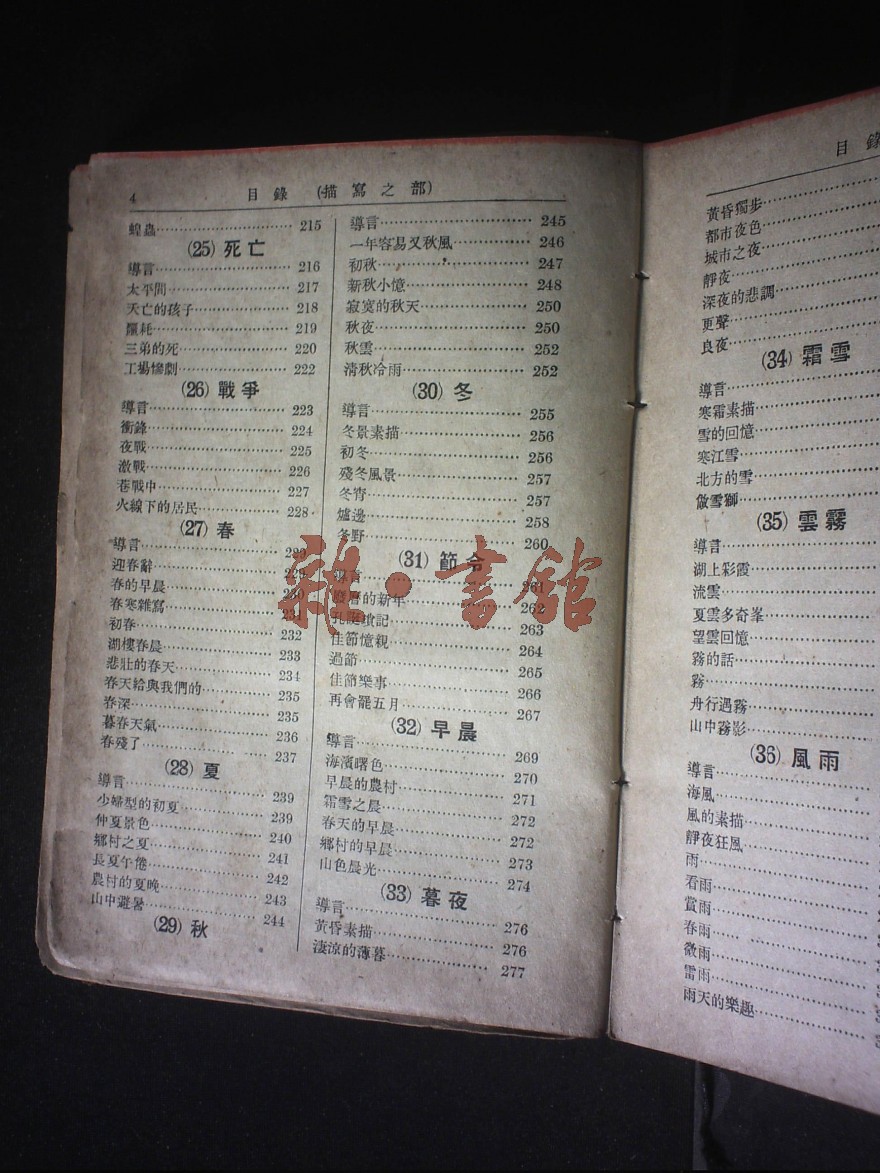 4 目錄 (描寫之部)
蝗蟲 215
(25) 死亡
導言 216
太平間 217
夭亡的孩子 218
噩耗 219
三弟的死 220
工場慘劇 222
(26) 戰爭
導言 223
衝鋒 224
夜戰 225
激戰 226
巷戰中 227
火線下的居民 228
(27) 春
導言 229
迎春辭 229
春的早晨 230
春寒雜寫 231
初春 232
湖樓春晨 233
悲壯的春天 234
春天給與我們的 235
春深 235
暮春天氣 236
春殘了 237
(28) 夏
導言 239
少婦型的初夏 239
仲夏景色 240
鄉村之夏 241
長夏午倦 242
農村的夏晚 243
山中避暑 244
(29) 秋
導言 245
一年容易又秋風 246
初秋 247
新秋小憶 248
寂寞的秋天 250
秋夜 250
秋雲 252
清秋冷雨 252
(30) 冬
導言 255
冬景素描 256
初冬 256
殘冬風景 257
冬宵 257
爐邊 258
冬野 260
(31) 節令
導言 261
廢曆的新年 262
孔誕瑣記 263
佳節憶親 264
過節 265
佳節樂事 266
再會罷五月 267
(32) 早晨
導言 269
海濱曙色 270
早晨的農村 271
霜雪之晨 272
春天的早晨 272
鄉村的早晨 273
山色晨光 274
(33) 暮夜
導言 276
黃昏素描 276
淒涼的薄暮 277
目錄
黃昏獨步
都市夜色
城市之夜
靜夜
深夜的悲調
更聲
良夜
(34) 霜雪
導言
寒霜素描
雪的回憶
寒江雪
北方的雪
做雪獅
(35) 雲霧
導言
湖上彩霞
流雲
夏雲多奇峯
望雲回憶
霧的話
霧
舟行遇霧
山中霧影
(36) 風雨
導言
海風
風的素描
靜夜狂風
雨
看雨
賞雨
春雨
微雨
雷雨
雨天的樂趣
雜·書館